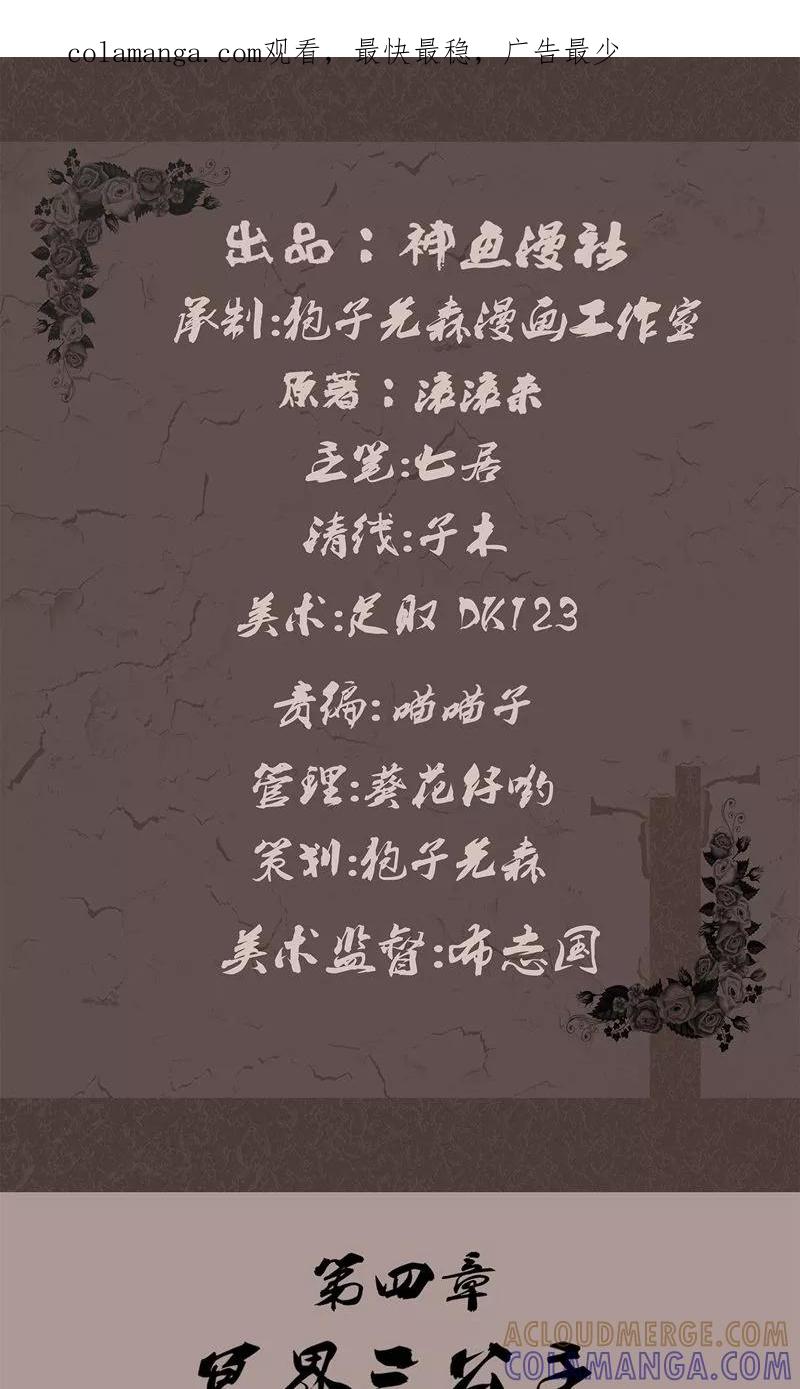 colamanga.com观看, 最快最稳, 广告最少
出品：神鱼漫社
承制:狍子先森漫画工作室
原著：滚滚来
主笔:七居
清线:子木
美术:足取 DK123
责编:喵喵子
管理:葵花仔哟
策划:狍子先森
美术监督:布志国
第四章
冥界三公主
ACLOUDMERGE.COM
COLAMANGA.COM